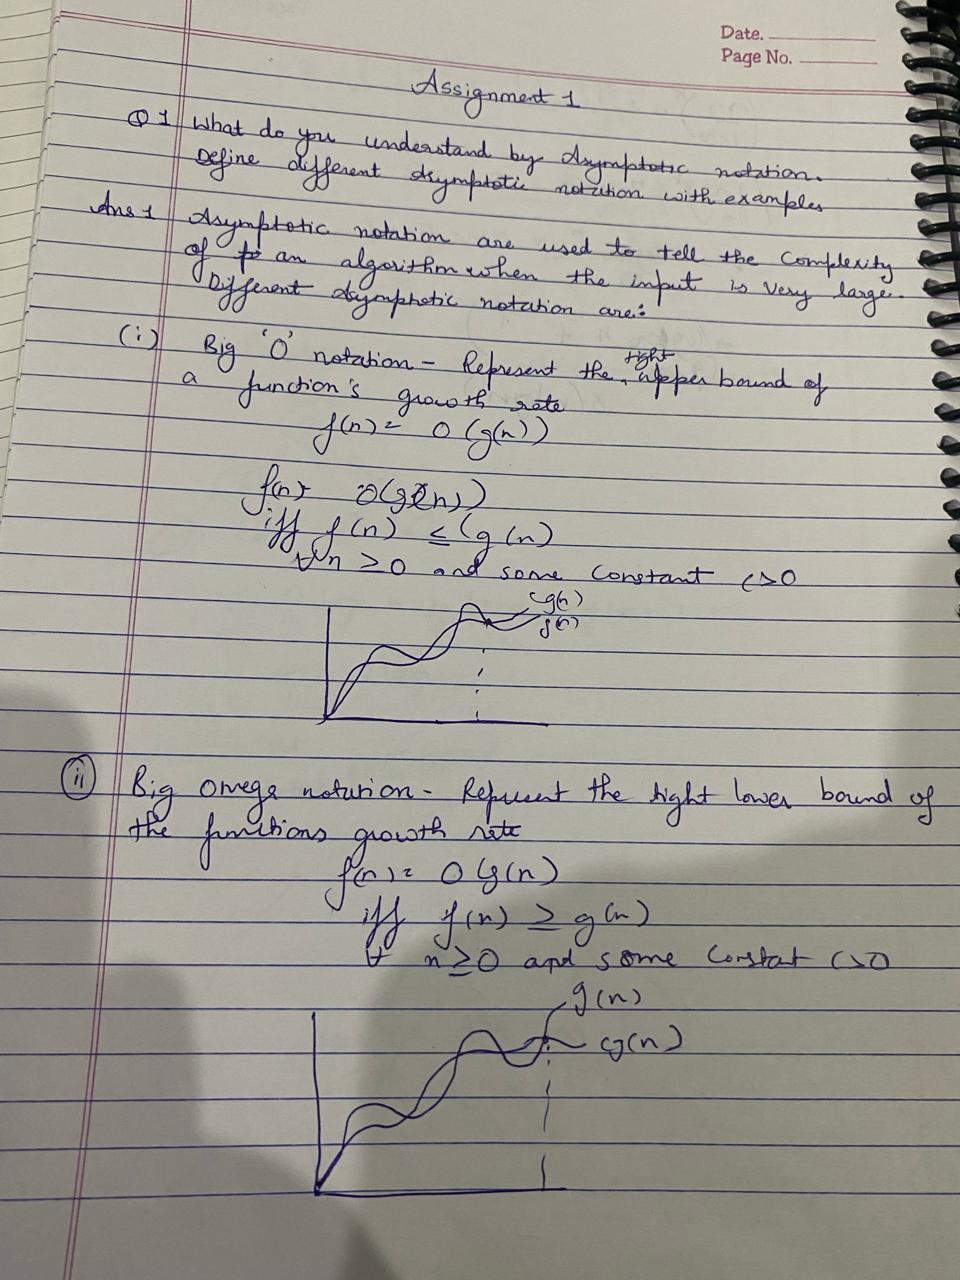 Date.
Page No.
Assignment 1
Q 1 What do you understand by Asymptotic notation.
Define different Asymptotic notation with examples
Ans 1 Asymptotic notation are used to tell the Complexity
of an algorithm when the input is very large.
Different Asymphotic notation are:
(i) Big 'O' notation - Represent the tight upper bound of
a function's growth rate
f(n) = O (g(n))
f(n) O(g(n))
iff f(n) ≤ Cg(n)
∀ n ≥0 and some Constant C>0
cg(n)
f(n)
ii Big Omega notation - Represent the tight lower bound of
the functions growth rate
f(n) = O g(n)
iff f(n) ≥ g(n)
∀ n≥0 and some Constat C>0
g(n)
cg(n)